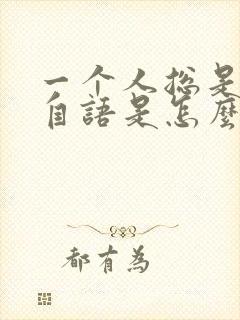 一个人总是
自語是怎麼
都有為